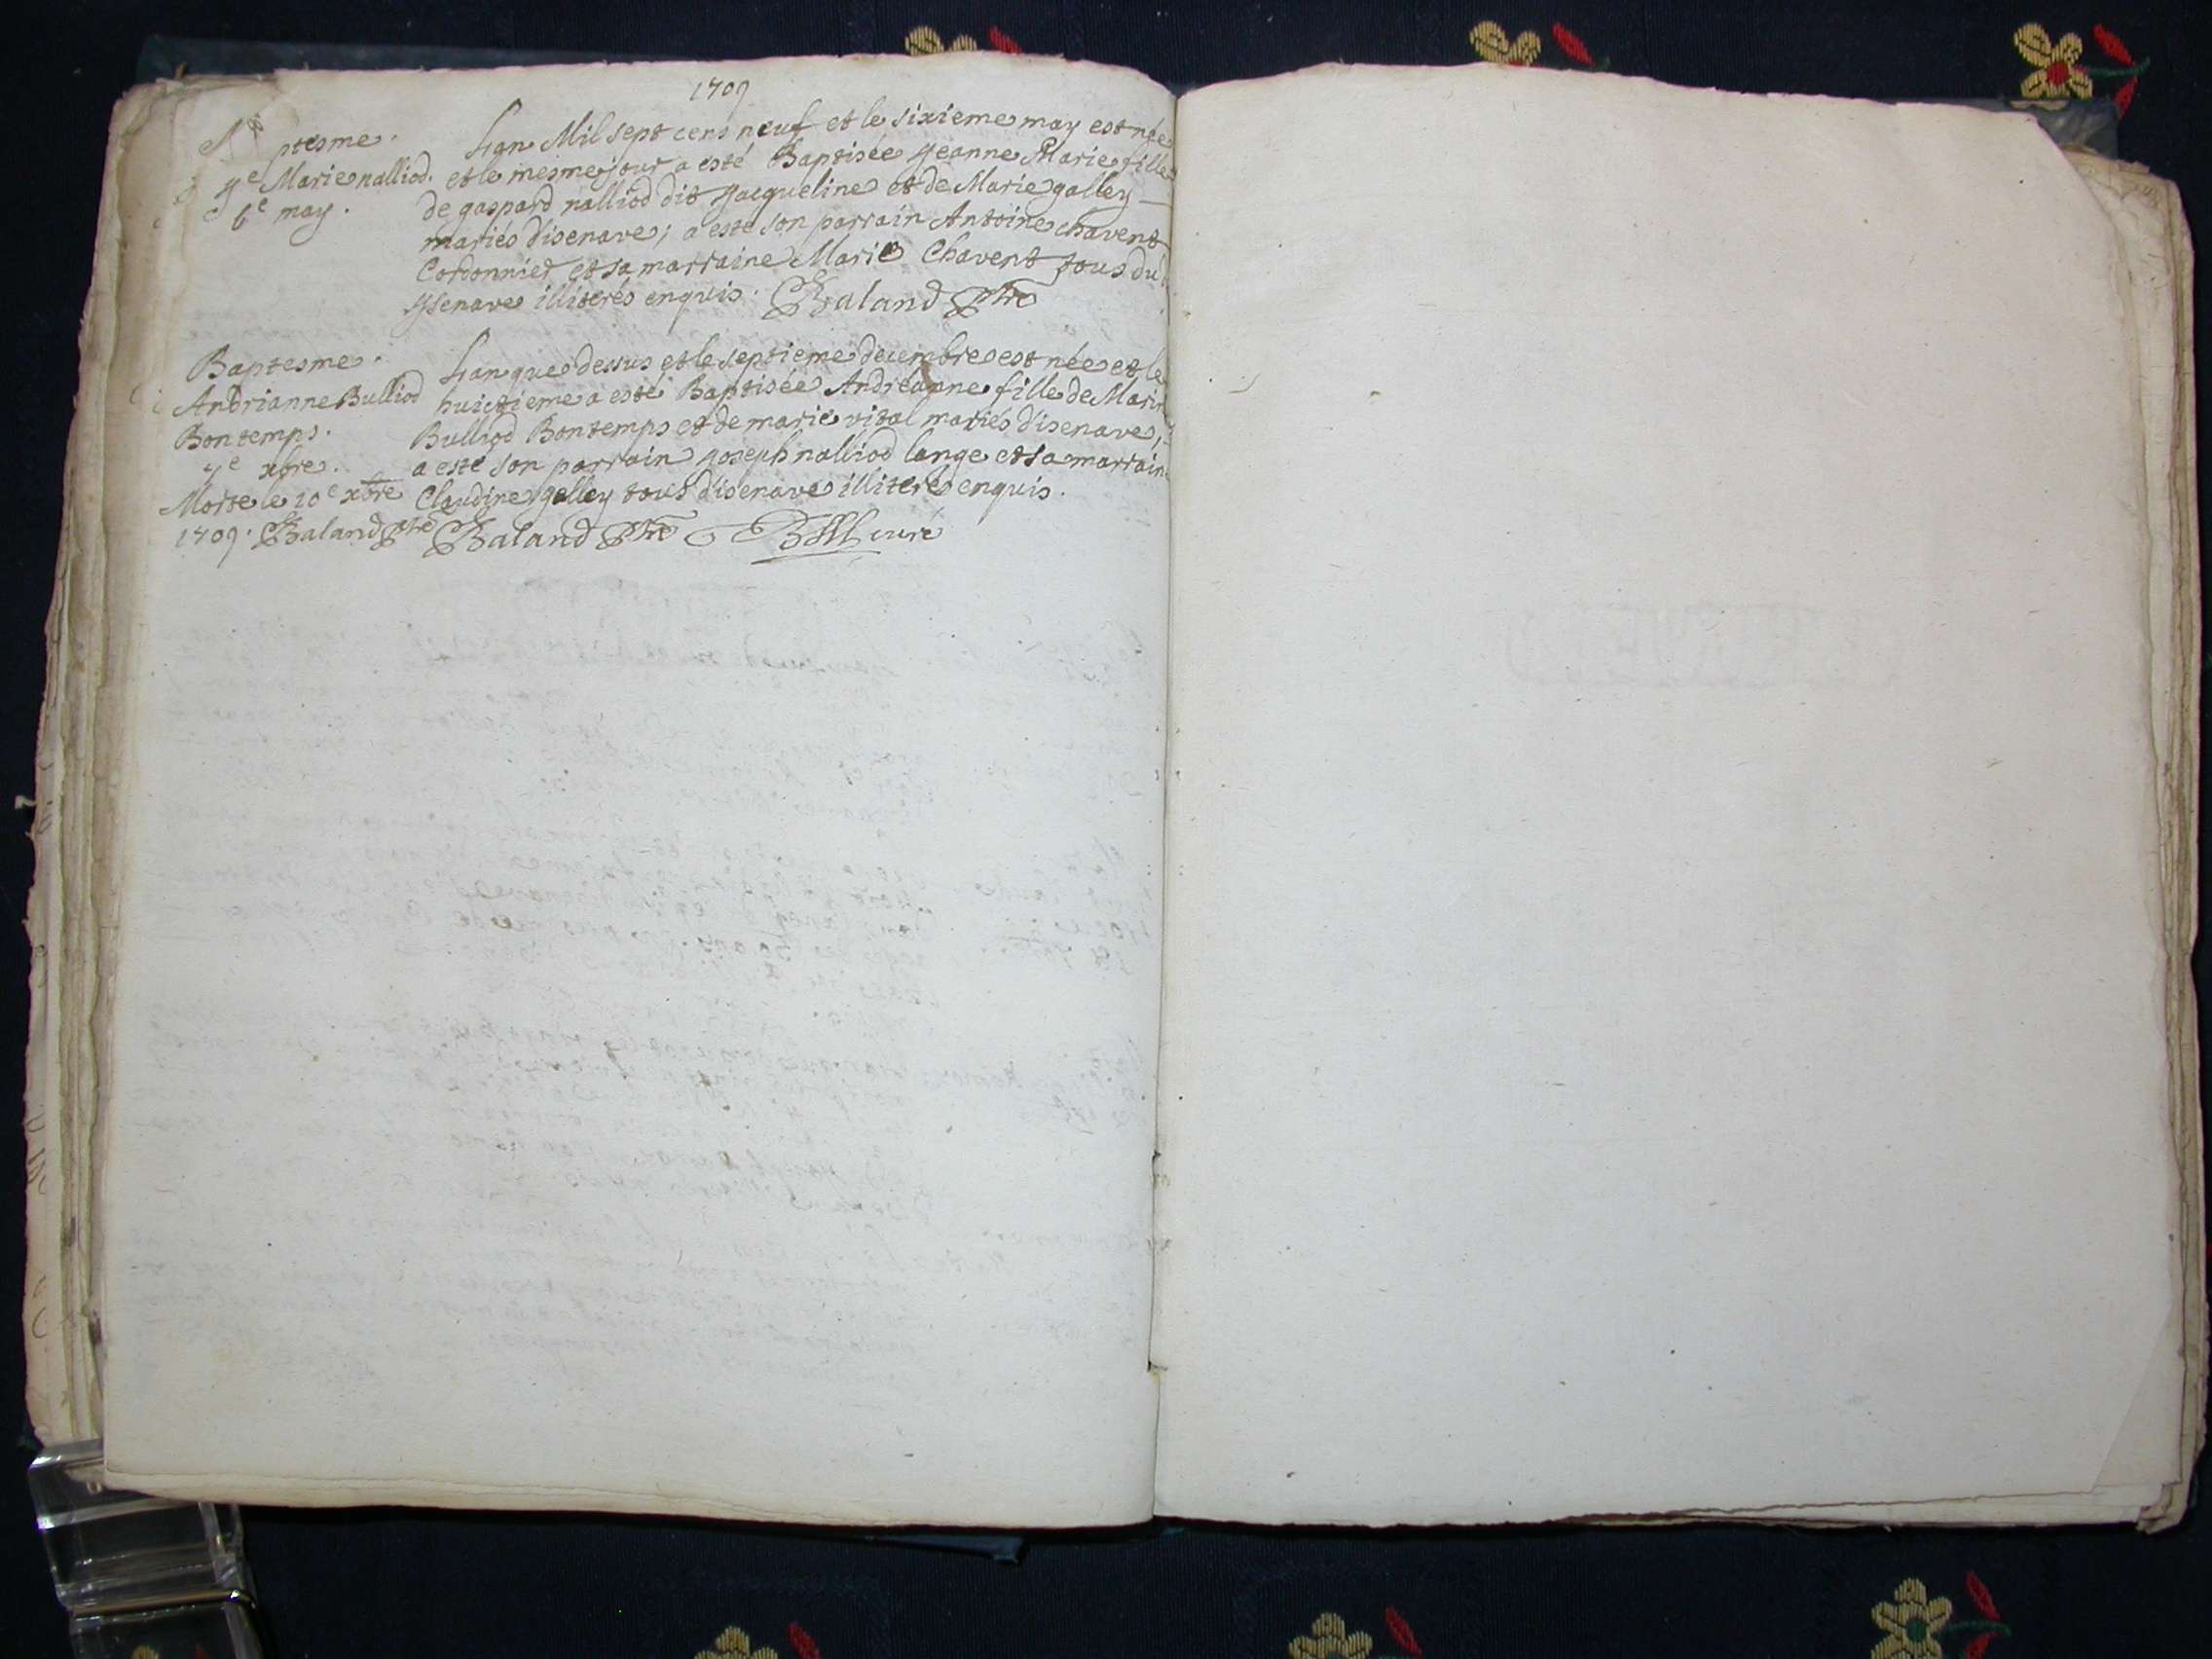 1709
ptesme.
Je Marie nalliod.
6e may.
Lan Mil sept cens neuf et le sixieme may est née
et le mesme jour a esté Baptisée Jeanne Marie fille
de gaspard nalliod dit Jacqueline et de Marie galley
mariés d'isenave; a esté son parrain Antoine chavent
Cordonnier et sa marraine Marie Chavent tous du
ysenave illiterés enquis. Baland ptre
Baptesme.
Andrianne Bulliod
Bontemps.
7e xbre.
Morte le 10e xbre
1709. Baland ptre
Lan que dessus et le septieme decembre est née et le
huictieme a esté Baptisée Andréanne fille de Marin
Bulliod Bontemps et de marie vital mariés d'isenave,
a esté son parrain joseph nalliod lange et sa marraine
Claudine galley tous d'isenave illiterés enquis.
Baland ptre curé